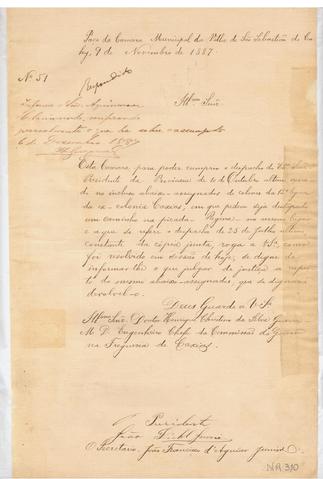 Paço da Camara Municipal da Villa de São Sebastião do Ca-
hy, 9 de Novembro de 1887.
Nº 51
Respondido
Illmo Snr
Informe o Snr. Agrimensor
pessoalmente o que ha sobre o assumpto
Dezembro 1887
Esta Camara, para poder cumprir o despacho do Exmo Snr
Presidente da Provincia de 10 de Outubro ultimo exara-
do no incluso abaixo-assignados de colonos da 15ª legua
da ex-colonia Caxias, em que pedem seja designado
um caminho na picada
a que se refere o despacho de 23 de Julho ultimo,
constante da cópia junta, roga a VSª, como
foi resolvido em sessão de hoje, se digne de
informar-lhe o que julgar de justiça a respei-
to do mesmo abaixo-assignados, que se dignará
devolvel-o.
Deus Guarde a V. Sª
Illmo Snr. Doutor Henrique Christino da Silva
M. D. Engenheiro Chefe da Commissão de
na Freguezia de Caxias
O Presidente
João
O Secretario, João Francisco d'Aguiar Junior